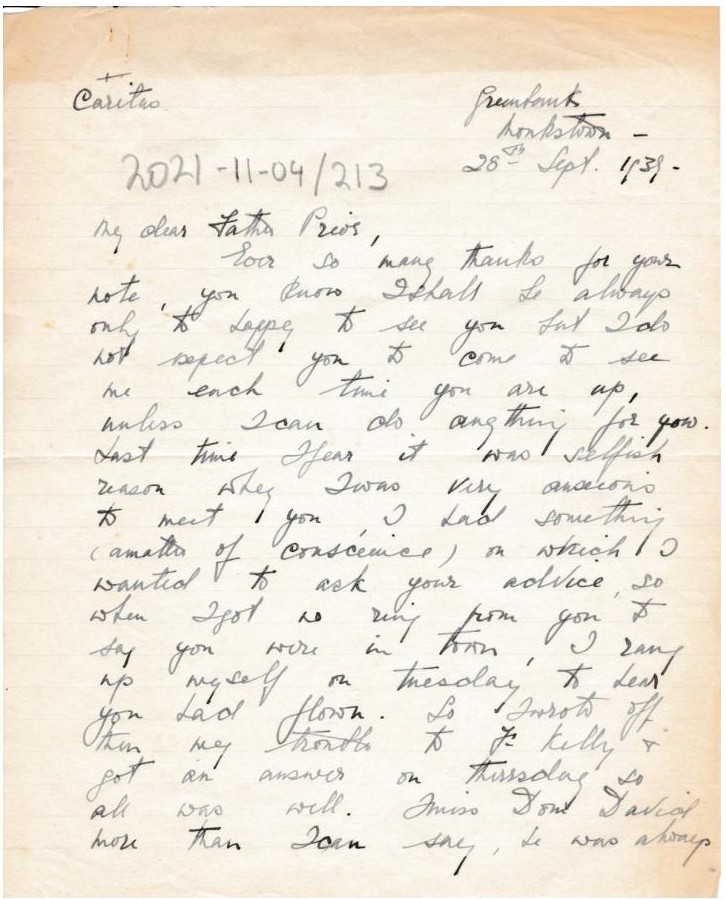 +
Caritas
Greenbank
Monkstown -
28th Sept. 1939 -
2021-11-04/213
My dear Father Prior,
Ever so many thanks for your
note, you know I shall be always
only to happy to see you but I do
not expect you to come to see
me each time you are up,
unless I can do anything for you.
Last time I fear it was selfish
reason whey I was very anxious
to meet you, I had something
(a matter of conscience) on which I
wanted to ask your advice, so
when I got no ring from you to
say you were in town, I rang
up myself on tuesday to hear
you had flown. So I wrote off
then my trouble to Fr Kelly &
got an answer on thursday so
all was well. I miss Dom David
more than I can say, he was always